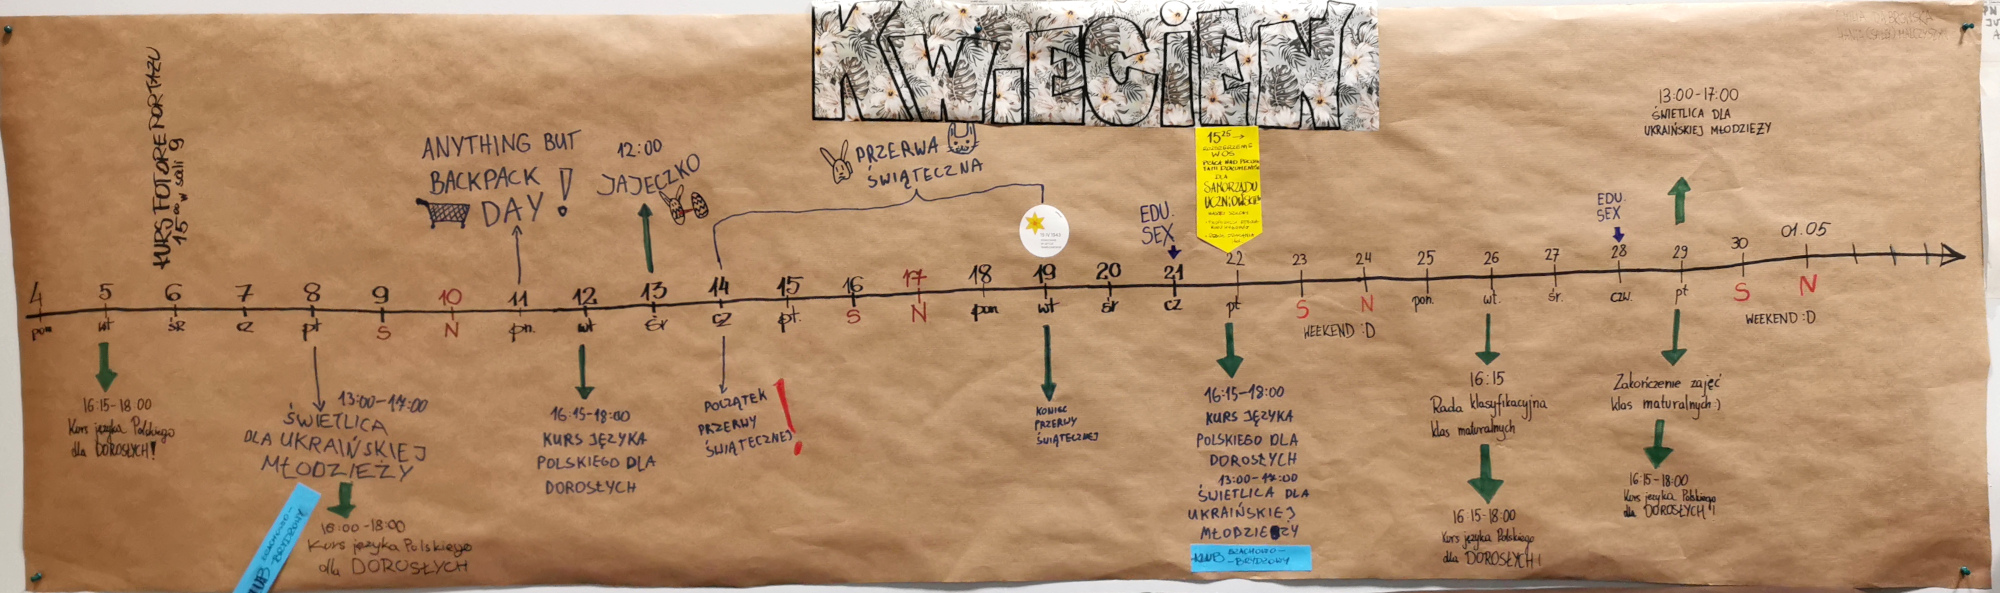 KWIECIEŃ
KURS FOTOREPORTAŻU
15⁰⁰ w sali 9
ANYTHING BUT
BACKPACK
DAY!
12:00
JAJECZKO
PRZERWA
ŚWIĄTECZNA
EDU.
SEX
15²⁵ →
WOS
DLA
SAMORZĄDU
UCZNIOWSKIEGO
EDU.
SEX
13:00-17:00
ŚWIETLICA DLA
UKRAIŃSKIEJ MŁODZIEŻY
4 5 6 7 8 9 10 11 12 13 14 15 16 17 18 19 20 21 22 23 24 25 26 27 28 29 30 01.05
pon wt śr cz pt S N pn. wt śr cz pt. S N pon wt śr cz pt S N pon. wt. śr. czw. pt S N
WEEKEND :D
WEEKEND :D
16:15-18:00
Kurs języka Polskiego
dla DOROSŁYCH!
13:00-17:00
ŚWIETLICA
DLA UKRAIŃSKIEJ
MŁODZIEŻY
KLUB SZACHOWO-
-BRYDŻOWY
16:00-18:00
Kurs języka Polskiego
dla DOROSŁYCH
16:15-18:00
KURS JĘZYKA
POLSKIEGO DLA
DOROSŁYCH
POCZĄTEK
PRZERWY
ŚWIĄTECZNEJ!
KONIEC
PRZERWY
ŚWIĄTECZNEJ
16:15-18:00
KURS JĘZYKA
POLSKIEGO DLA
DOROSŁYCH
13:00-17:00
ŚWIETLICA DLA
UKRAIŃSKIEJ
MŁODZIEŻY
KLUB SZACHOWO-
-BRYDŻOWY
16:15
Rada klasyfikacyjna
klas maturalnych
16:15-18:00
Kurs języka Polskiego
dla DOROSŁYCH!
Zakończenie zajęć
klas maturalnych:)
16:15-18:00
Kurs języka Polskiego
dla DOROSŁYCH!